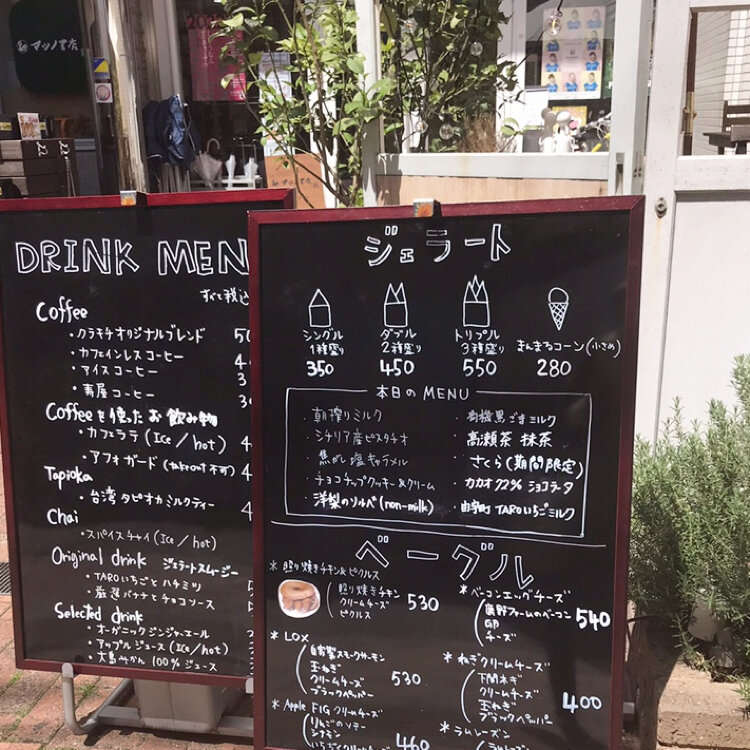 DRINK MEN
すべて税込
Coffee
・クラキチオリジナルブレンド
・カフェインレスコーヒー
・アイスコーヒー
・寿屋コーヒー
Coffeeを使ったお飲み物
・カフェラテ(Ice/hot)
・アフォガード(takeout不可)
Tapioka
・台湾タピオカミルクティー
Chai
・スパイスチャイ(Ice/hot)
Original drink ジェラートスムージー
・TAROいちごとハチミツ
・厳選バナナとチョコソース
Selected drink
・オーガニックジンジャーエール
・アップルジュース(Ice/hot)
・大島みかん100%ジュース
ジェラート
シングル
1種盛り
350
ダブル
2種盛り
450
トリプル
3種盛り
550
まんまるコーン(小さめ)
280
本日のMENU
・朝搾りミルク
・シチリア産ピスタチオ
・焦がし塩キャラメル
・チョコチップクッキー&クリーム
・洋梨のソルベ(non-milk)
・有機黒ごまミルク
・高瀬茶 抹茶
・さくら(期間限定)
・カカオ72% ショコラータ
TAROいちごミルク
ベーグル
*照り焼きチキン&ピクルス
照り焼きチキン
クリームチーズ
ピクルス
530
*LOX
自家製スモークサーモン
玉ねぎ
クリームチーズ
ブラックペッパー
530
*Apple FIGクリームチーズ
りんごのソテー
シナモン
いちじくクリームチーズ
460
*ベーコンエッグチーズ
ファームのベーコン
卵
チーズ
540
*ねぎクリームチーズ
下関ネギ
クリームチーズ
玉ねぎ
ブラックペッパー
400
*ラムレーズン
ラムレーズン